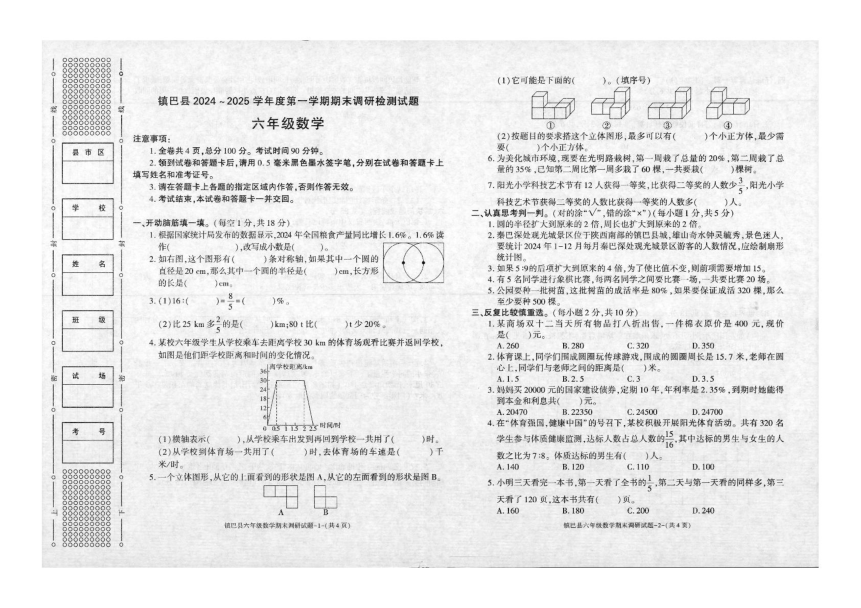 镇巴县 2024 ~ 2025 学年度第一学期期末调研检测试题
六年级数学
注意事项:
1. 全卷共 4 页,总分 100 分。考试时间 90 分钟。
2. 领到试卷和答题卡后,请用 0. 5 毫米黑色墨水签字笔,分别在试卷和答题卡上
填写姓名和准考证号。
3. 请在答题卡上各题的指定区域内作答,否则作答无效。
4. 考试结束,本试卷和答题卡一并交回。
县 市 区
学 校
姓 名
班 级
试 场
考 号
线
封
密
上
下
一、开动脑筋填一填。(每空 1 分,共 18 分)
1. 根据国家统计局发布的数据显示,2024 年全国粮食产量同比增长 1. 6%。1. 6% 读
作( ),改写成小数是( )。
2. 如右图,这个图形有( )条对称轴,如果其中一个圆的
直径是 20 cm,那么其中一个圆的半径是( )cm,长方形
的长是( )cm。
3. (1)16:( )=8/5=( )%。
(2)比 25 km 多2/5的是( )km;80 t 比( )t 少 20%。
4. 某校六年级学生从学校乘车去距离学校 30 km 的体育场观看比赛并返回学校,
如图是他们距学校距离和时间的变化情况。
离学校距离/km
36
30
24
18
12
6
0 0.5 1 1.5 2 2.5 时间/时
(1)横轴表示( ),从学校乘车出发到再回到学校一共用了( )时。
(2)从学校到体育场一共用了( )时,去体育场的车速是( )千
米/时。
5. 一个立体图形,从它的上面看到的形状是图 A,从它的左面看到的形状是图 B。
A B
镇巴县六年级数学期末调研试题-1-(共 4 页)
(1)它可能是下面的( )。(填序号)
① ② ③ ④
(2)按题目的要求搭这个立体图形,最多可以有( )个小正方体,最少需
要( )个小正方体。
6. 为美化城市环境,现要在光明路栽树,第一周栽了总量的 20%,第二周栽了总
量的 35%,已知第二周比第一周多栽了 60 棵,一共要栽( )棵树。
7. 阳光小学科技艺术节有 12 人获得一等奖,比获得二等奖的人数少3/5,阳光小学
科技艺术节获得二等奖的人数比获得一等奖的人数多( )人。
二、认真思考判一判。(对的涂“√”,错的涂“×”)(每小题 1 分,共 5 分)
1. 圆的半径扩大到原来的 2 倍,周长也扩大到原来的 2 倍。
2. 秦巴深处观光城景区位于陕西南部的镇巴县城,雄山奇水钟灵毓秀,景色迷人,
要统计 2024 年 1-12 月每月秦巴深处观光城景区游客的人数情况,应绘制扇形
统计图。
3. 如果 5:9的后项扩大到原来的 4 倍,为了使比值不变,则前项需要增加 15。
4. 有 5 名同学进行象棋比赛,每两名同学之间要比赛一场,一共要比赛 20 场。
5. 公园要种一批树苗,这批树苗的成活率是 80%,如果要保证成活 320 棵,那么
至少要种 500 棵。
三、反复比较慎重选。(每小题 2 分,共 10 分)
1. 某商场双十二当天所有物品打八折出售,一件棉衣原价是 400 元,现价
是( )元。
A. 260 B. 280 C. 320 D. 350
2. 体育课上,同学们围成圆圈玩传球游戏,围成的圆圈周长是 15. 7 米,老师在圆
心上,同学们与老师之间的距离是( )米。
A. 1. 5 B. 2. 5 C. 3 D. 3. 5
3. 妈妈买 20000 元的国家建设债券,定期 10 年,年利率是 2. 35%,到期时她能得
到本金和利息共( )元。
A. 20470 B. 22350 C. 24500 D. 24700
4. 在“体育强国,健康中国”的号召下,某校积极开展阳光体育活动。共有 320 名
学生参与体质健康监测,达标人数占总人数的15/16,其中达标的男生与女生的人
数之比为 7:8。体质达标的男生有( )人。
A. 140 B. 120 C. 110 D. 100
5. 小明三天看完一本书,第一天看了全书的1/5,第二天与第一天看的同样多,第三
天看了 120 页,这本书共有( )页。
A. 160 B. 180 C. 200 D. 240
镇巴县六年级数学期末调研试题-2-(共 4 页)